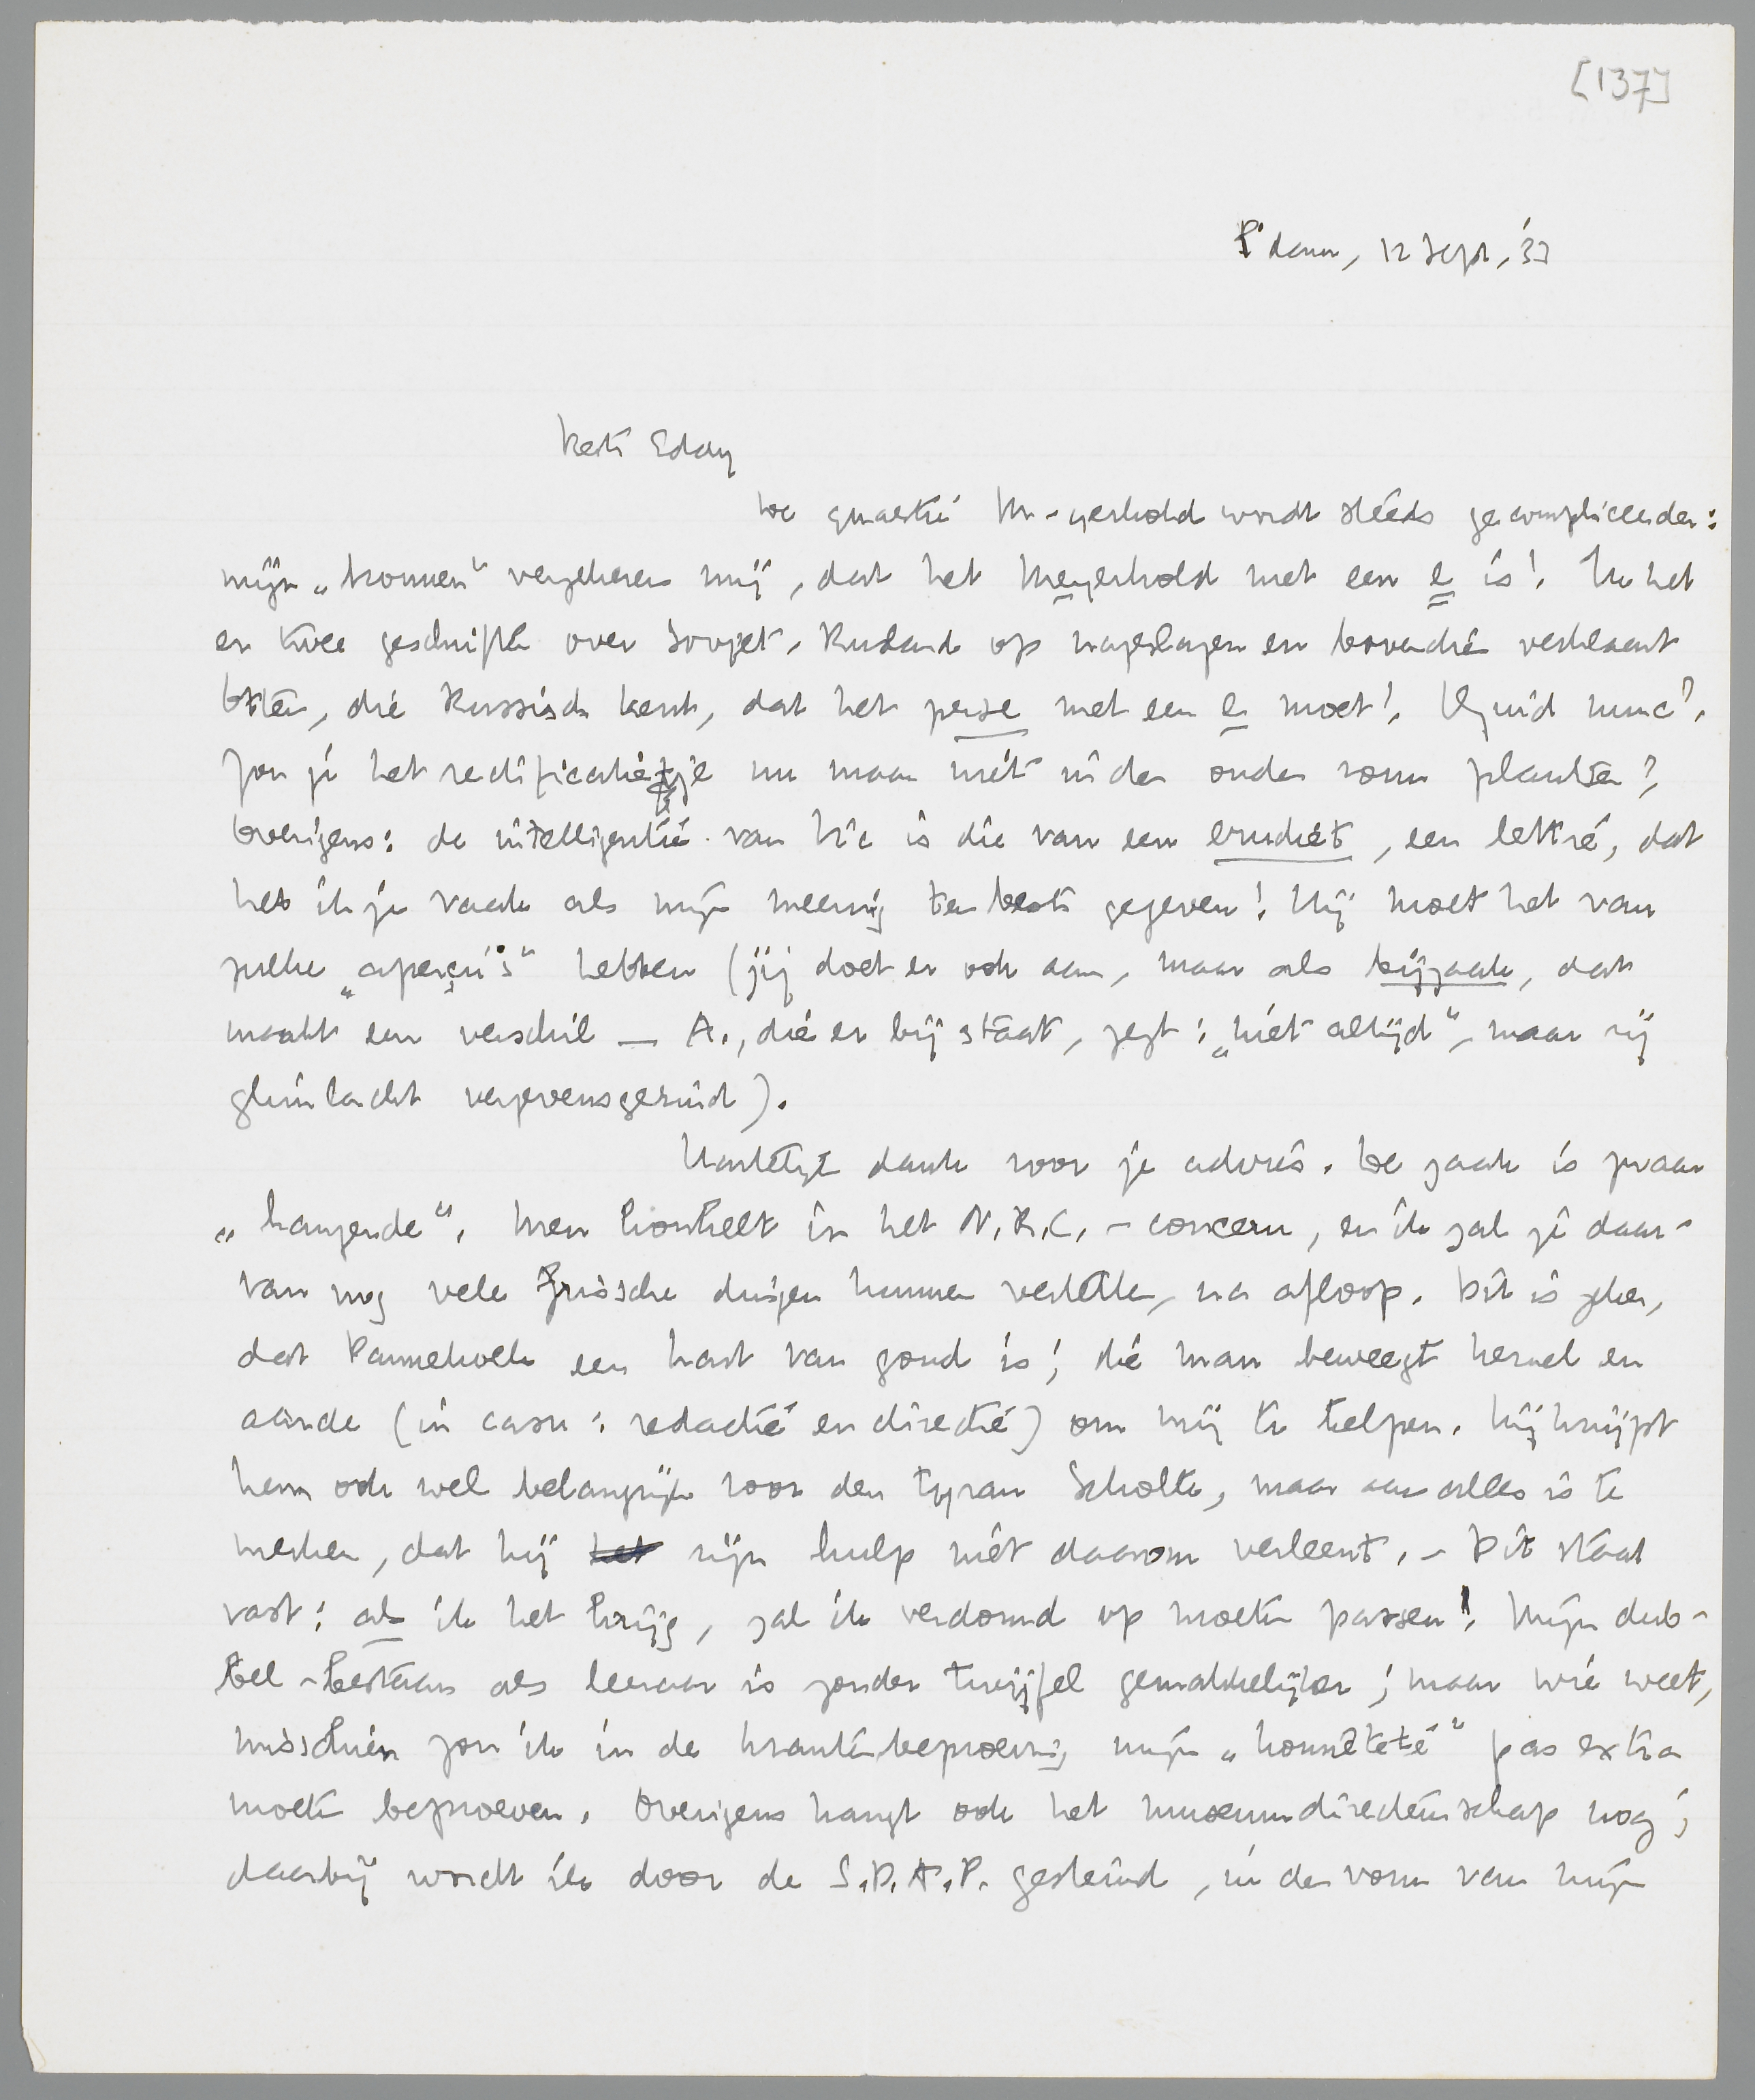 [137]
R'dam, 12 Sept. '33
Beste Eddy
De quaestie M-yerhold wordt steeds gecompliceerder:
mijn „bronnen" verzekeren mij, dat het Meyerhold met een e is! Ik heb
er twee geschriften over Sovjet-Rusland op nageslagen en bovendien verklaart
Otten, die Russisch kent, dat het perse met een e moet! Quid nunc?
Zou je het rectificatietje nu maar niet in den ouden vorm plaatsen?
Overigens: de intelligentie van Vic is die van een erudiet, een lettré, dat
heb ik je vaak als mijn meening ten beste gegeven! Hij moet het van
zulke „aperçu's" hebben (jij doet er ook aan, maar als bijzaak, dat
maakt een verschil — A., die er bij staat, zegt: „niet altijd", maar zij
glimlacht vergevensgezind).
Hartelijk dank voor je advies. De zaak is zwaar
„hangende". Men konkelt in het N.R.C.-concern, en ik zal je daar-
van nog vele frissche dingen kunnen vertellen, na afloop. Dit is zeker,
dat Pannekoek een hart van goud is; die man beweegt hemel en
aarde (in casu: redactie en directie) om mij te helpen. Hij knijpt
hem ook wel belangrijk voor den tyran Scholte, maar aan alles is te
merken, dat hij het zijn hulp niet daarom verleent. - Dit staat
vast: als ik het krijg, zal ik verdomd op moeten passen! Mijn dub-
bel-bestaan als leeraar is zonder twijfel gemakkelijker; maar wie weet,
misschien zou ik in de krantenbeproeving mijn „honnêteté" pas extra
moeten beproeven. Overigens hangt ook het museumdirecteurschap nog;
daarbij wordt ik door de S.D.A.P. gesteund, in den vorm van mijn